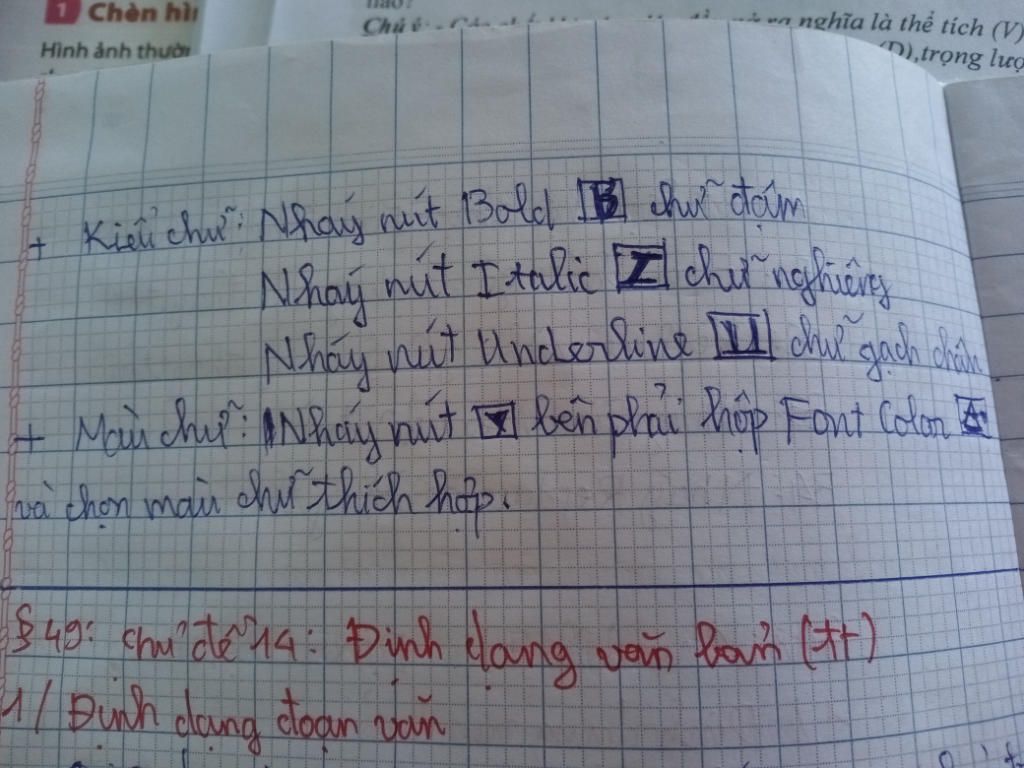 1 Chèn hìn
Hình ảnh thườn
nào?
Chú ý: ra nghĩa là thể tích (V)
(D), trọng lượ
+ Kiểu chữ: Nháy nút Bold B chữ đậm
Nháy nút Italic I chữ nghiêng
Nháy nút Underline U chữ gạch chân
+ Màu chữ: Nháy nút ▼ bên phải hộp Font Color A
và chọn màu chữ thích hợp.
§ 49: chủ đề 14: Định dạng văn bản (tt)
1/ Định dạng đoạn văn